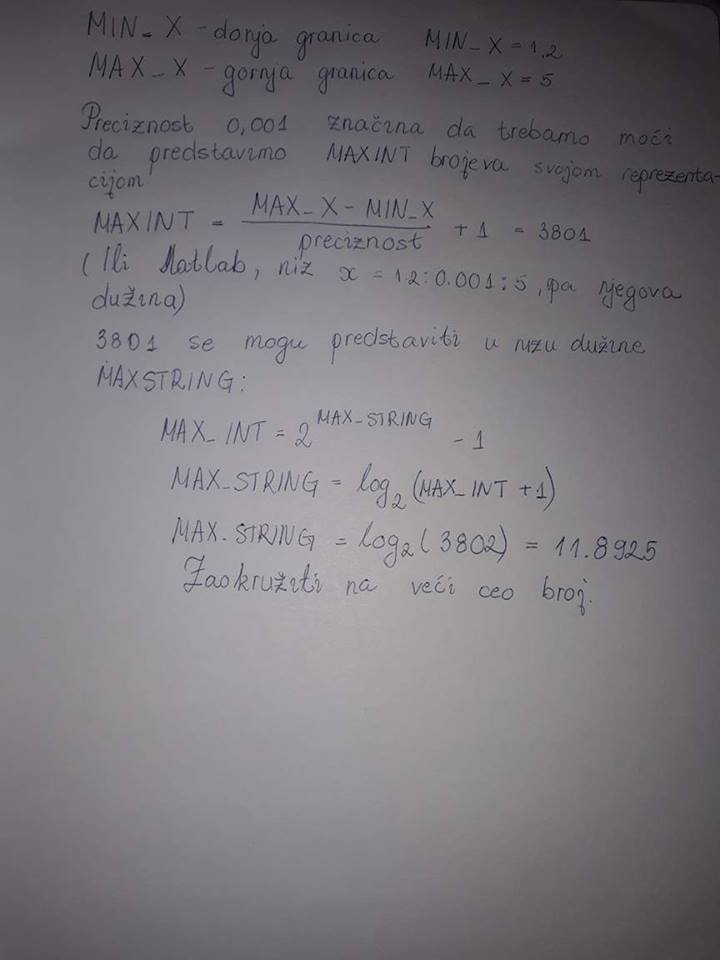 MIN_X - donja granica MIN_X = 1,2
MAX_X - gornja granica MAX_X = 5
Preciznost 0,001 značina da trebamo moći
da predstavimo MAXINT brojeva svojom reprezenta-
cijom
MAXINT = \frac{MAX_X - MIN_X}{preciznost} + 1 = 3801
(Ili Matlab, niz x = 1.2:0.001:5, pa njegova
dužina)
3801 se mogu predstaviti u nizu dužine
MAXSTRING:
MAX_INT = 2^{MAX_STRING} - 1
MAX_STRING = log_2 (MAX_INT + 1)
MAX_STRING = log_2 (3802) = 11.8925
Zaokružiti na veći ceo broj.